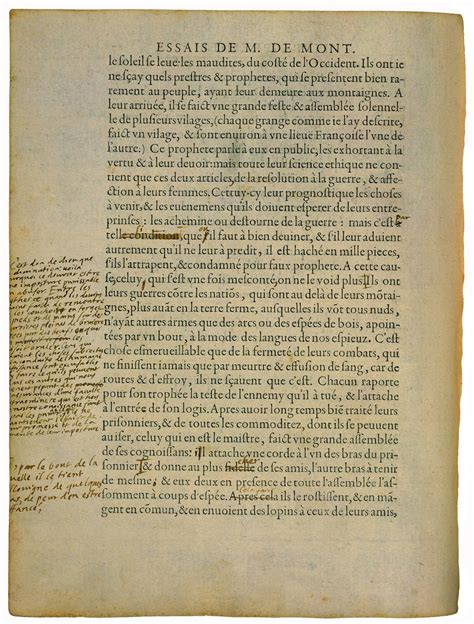 ESSAIS DE M. DE MONT.
le soleil se leue: les maudites, du costé de l'Occident. Ils ont ie
ne sçay quels prestres & prophetes, qui se presentent bien ra-
rement au peuple, ayant leur demeure aux montaignes. A
leur arriuée, il se faict vne grande feste & assemblée solennel-
le de plusieurs vilages, (chaque grange comme ie l'ay descrite,
faict vn vilage, & sont enuiron à vne lieue Françoise l'vne de
l'autre.) Ce prophete parle à eux en public, les exhortant à la
vertu & à leur deuoir: mais toute leur science ethique ne con-
tient que ces deux articles, de la resolution à la guerre, & affe-
ction à leurs femmes. Cettuy-cy leur prognostique les choses
à venir, & les euenemens qu'ils doiuent esperer de leurs entre-
prinses: les achemine ou destourne de la guerre: mais c'est par
telle condition, que, où il faut à bien deuiner, & s'il leur aduient
autrement qu'il ne leur a predit, il est haché en mille pieces,
s'ils l'attrapent, & condamné pour faux prophete. A cette cau-
se, celuy, qui s'est vne fois mesconté, on ne le void plus. Ils ont
leurs guerres côtre les natiõs, qui sont au delà de leurs mõtai-
gnes, plus auãt en la terre ferme, ausquelles ils võt tous nuds,
n'ayãt autres armes que des arcs ou des espées de bois, apoin-
tées par vn bout, à la mode des langues de nos espieuz. C'est
chose esmerueillable que de la fermeté de leurs combats, qui
ne finissent iamais que par meurtre & effusion de sang, car de
routes & d'effroy, ils ne sçauent que c'est. Chacun raporte
pour son trophée la teste de l'ennemy qu'il a tué, & l'attache
à l'entrée de son logis. Apres auoir long temps biē traité leurs
prisonniers, & de toutes les commoditez, dont ils se peuuent
auiser, celuy qui en est le maistre, faict vne grande assemblée
de ses cognoissans: Il attache vne corde à l'vn des bras du pri-
sonnier, & donne au plus cher de ses amis, l'autre bras à tenir
de mesme; & eux deux en presence de toute l'assemblée l'as-
somment à coups d'espée. Apres cela ils le rostissent, & en mã-
gent en cõmun, & en enuoient des lopins à ceux de leurs amis,
C'est don de dieu que
diuination: voila
par le bout de la
quelle il le tient
esloigné de quelques
pas, de peur d'en estre
offancé,